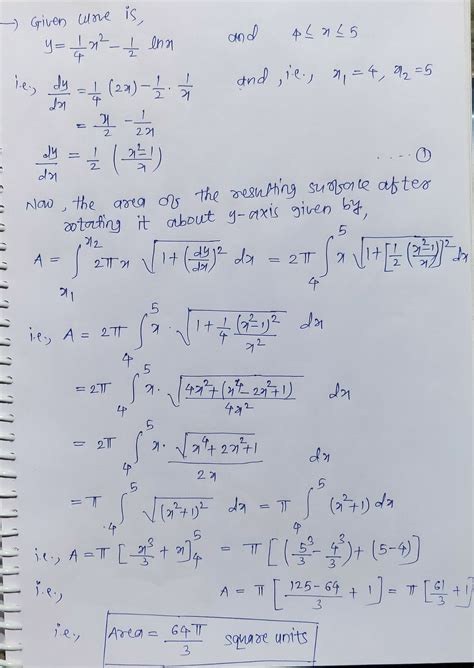 → Given curve is,
y = 1/4 x² - 1/2 lnx and 4 ≤ x ≤ 5
i.e., dy/dx = 1/4 (2x) - 1/2 · 1/x and, i.e., x₁ = 4, x₂ = 5
= x/2 - 1/2x
dy/dx = 1/2 (x²-1/x) ---- ①
Now, the area of the resulting surface after
rotating it about y-axis given by,
A = ∫_{x₁}^{x₂} 2πx √(1 + (dy/dx)²) dx = 2π ∫_4^5 x √(1 + [1/2 (x²-1/x)]²) dx
i.e., A = 2π ∫_4^5 x · √(1 + 1/4 (x²-1)²/x²) dx
= 2π ∫_4^5 x · √((4x² + (x⁴ - 2x² + 1))/4x²) dx
= 2π ∫_4^5 x · √(x⁴ + 2x² + 1)/2x dx
= π ∫_4^5 √((x²+1)²) dx = π ∫_4^5 (x²+1) dx
i.e., A = π [x³/3 + x]_4^5 = π [(5³/3 - 4³/3) + (5-4)]
i.e., A = π [125-64/3 + 1] = π [61/3 + 1]
i.e., Area = 64π/3 square units